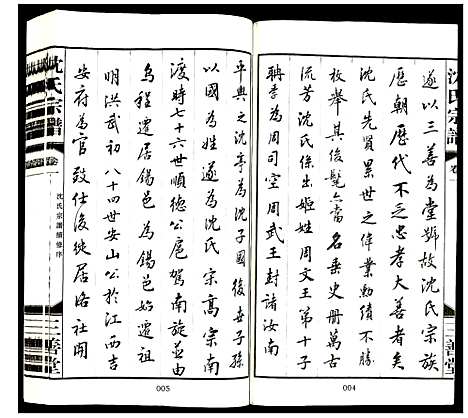 沈氏宗譜
卷一
三善堂
遂以三善為堂號故沈氏宗族
歷朝歷代不乏忠孝大善者矣
沈氏先賢累世之偉業勳績不勝
枚舉其後髦六當名垂史冊萬古
流芳沈氏係出姬姓周文王第十子
聃季為周司空周武王封諸汝南
004
平輿之沈亭為沈子國後世子孫
以國為姓遂為沈氏宗高宗南
渡時七十六世順德公扈駕南旋並由
烏程遷居錫邑為錫邑始遷祖
明洪武初八十四世安山公於江西吉
安府為官致仕後徙居洛社開
005
沈氏宗譜
卷一
沈氏宗譜續修序
三善堂